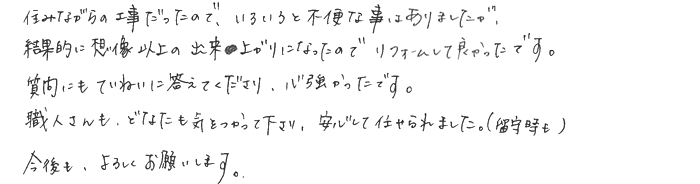 住みながらの工事だったので、いろいろと不便な事はありましたが、
結果的に想像以上の出来上がりになったのでリフォームして良かったです。
質問にもていねいに答えてくださり、心強かったです。
職人さんも、どなたも気をつかって下さり、安心して任せられました。(留守時も)
今後も、よろしくお願いします。